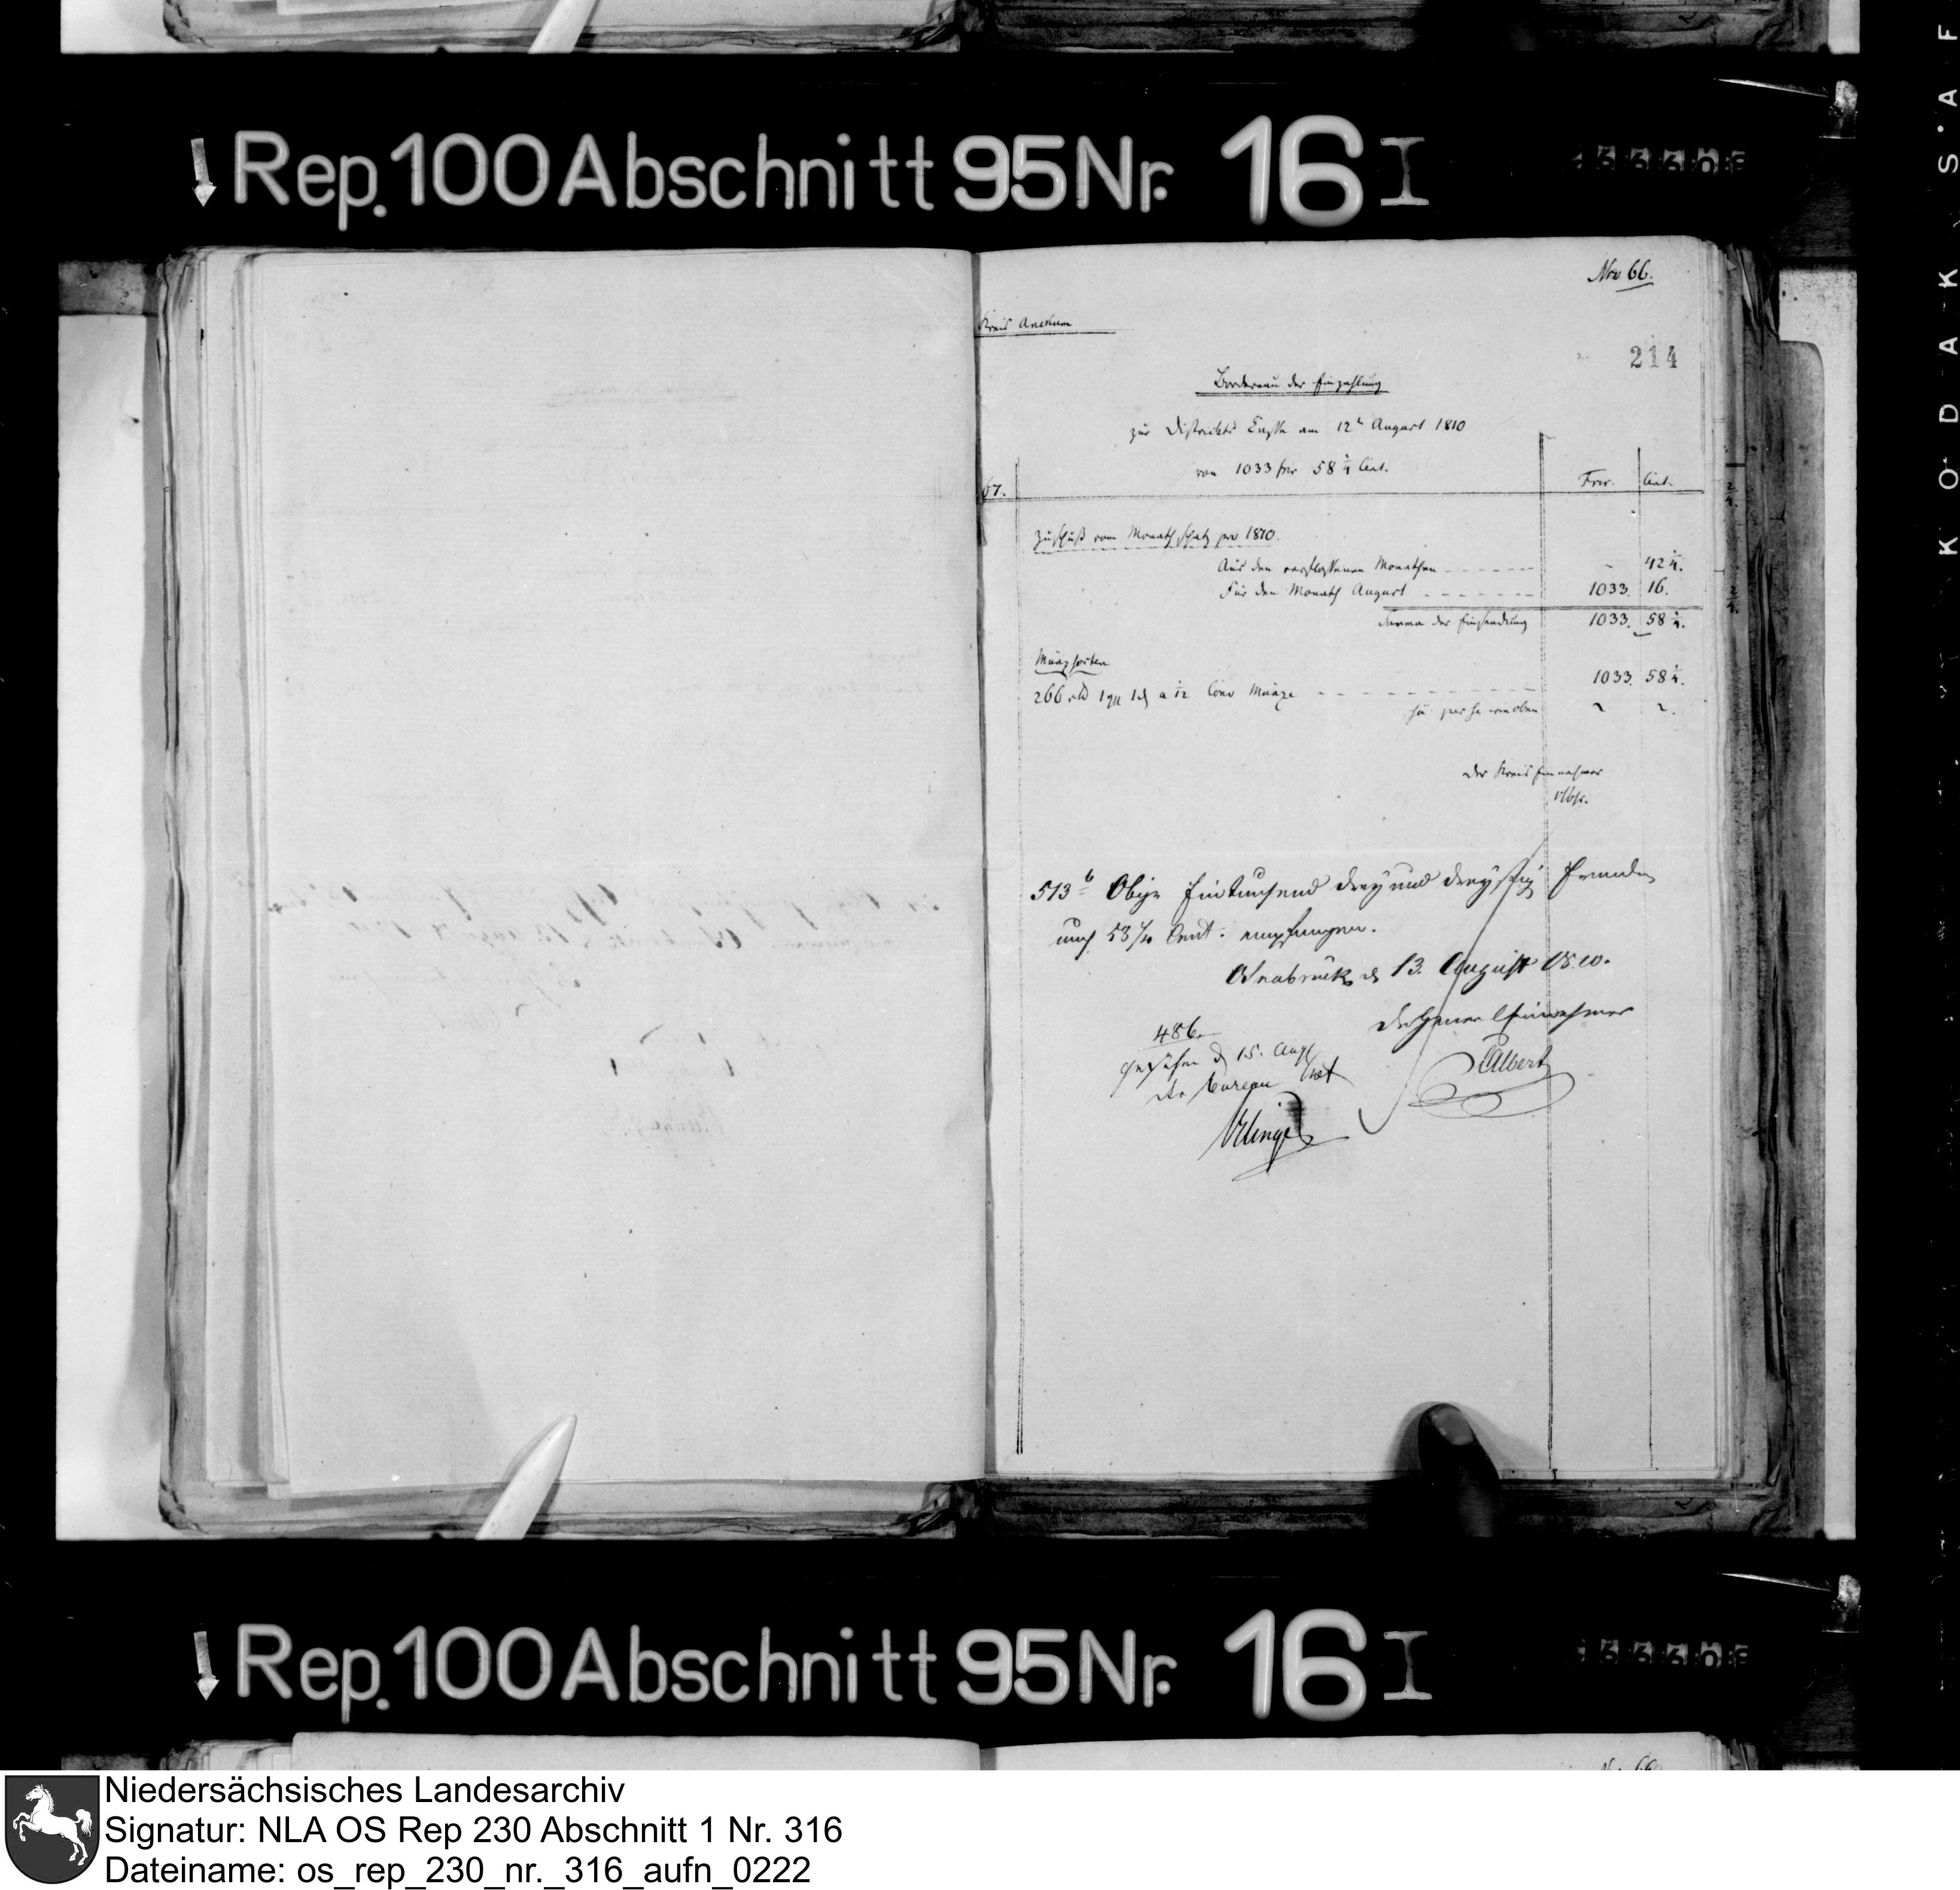 Rep. 100 Abschnitt 95 Nr. 16 I
Nro 66.
Kreis Anckum
214
Bordereau der Einzahlung
zur Districkts Casse am 12t August 1810
von 1033 frcs 58 1/4 Cent.
67.
Frcs. Cent.
Zuschuß vom Monathschatz pro 1810.
Aus den verflossenen Monathen - 42 1/4.
Für den Monath August 1033. 16.
Summa der Einsendung 1033. 58 1/4.
Münzsorten
266 1 1 a 1/12 Conv Münze 1033. 58 1/4.
wie oben
Der Kreis Einnehmer
513 Obige Eintausend drey und dreyssig Franken
und 58 Cent. empfangen.
Osnabrück d 13. August 1810.
Der General Einnehmer
Albert
486.
gesehen d 15. Aug
Bureau
Rep. 100 Abschnitt 95 Nr. 16 I
KODAK S.A.F
Niedersächsisches Landesarchiv
Signatur: NLA OS Rep 230 Abschnitt 1 Nr. 316
Dateiname: os_rep_230_nr._316_aufn_0222